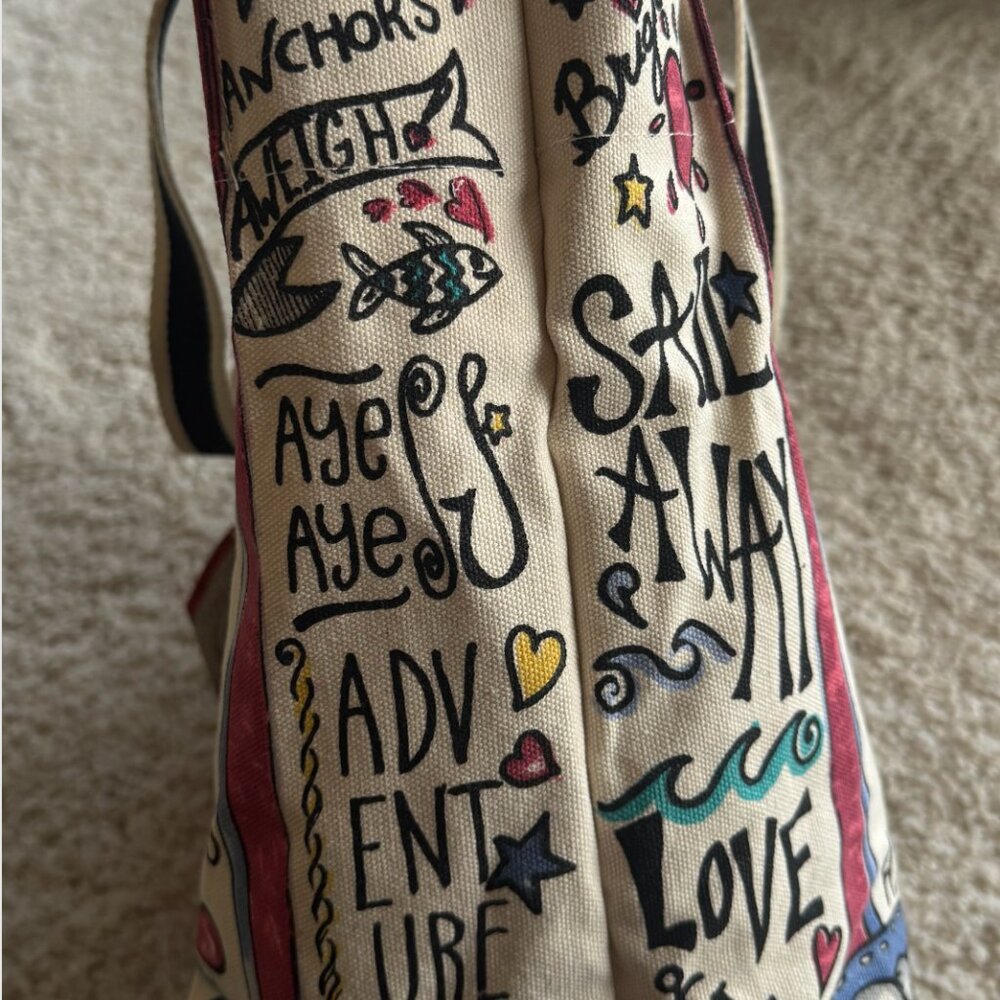 ANCHORS
AWEIGH
AYE
AYE
ADV
ENT
URE
SAIL
AWAY
LOVE
&